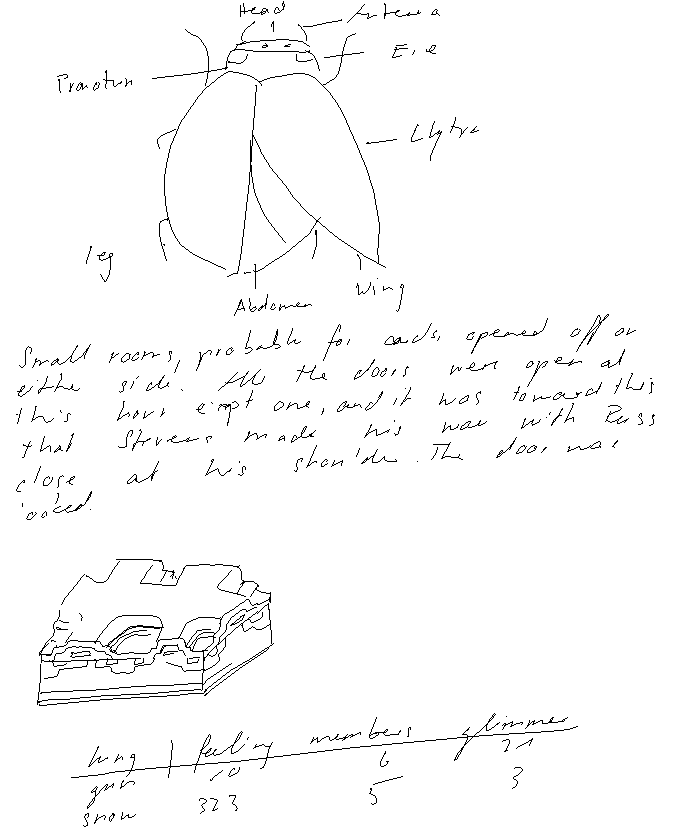 Head
Antenna
Eye
Pronotum
Elytra
leg
Wing
Abdomen
Small rooms, probable for cards, opened off on
either side. All the doors were open at
this hour except one, and it was toward this
that Stevens made his way with Russ
close at his shoulder. The door was
locked.
lung feeling members glimmer
gun 10 6 21
snow 323 5 3